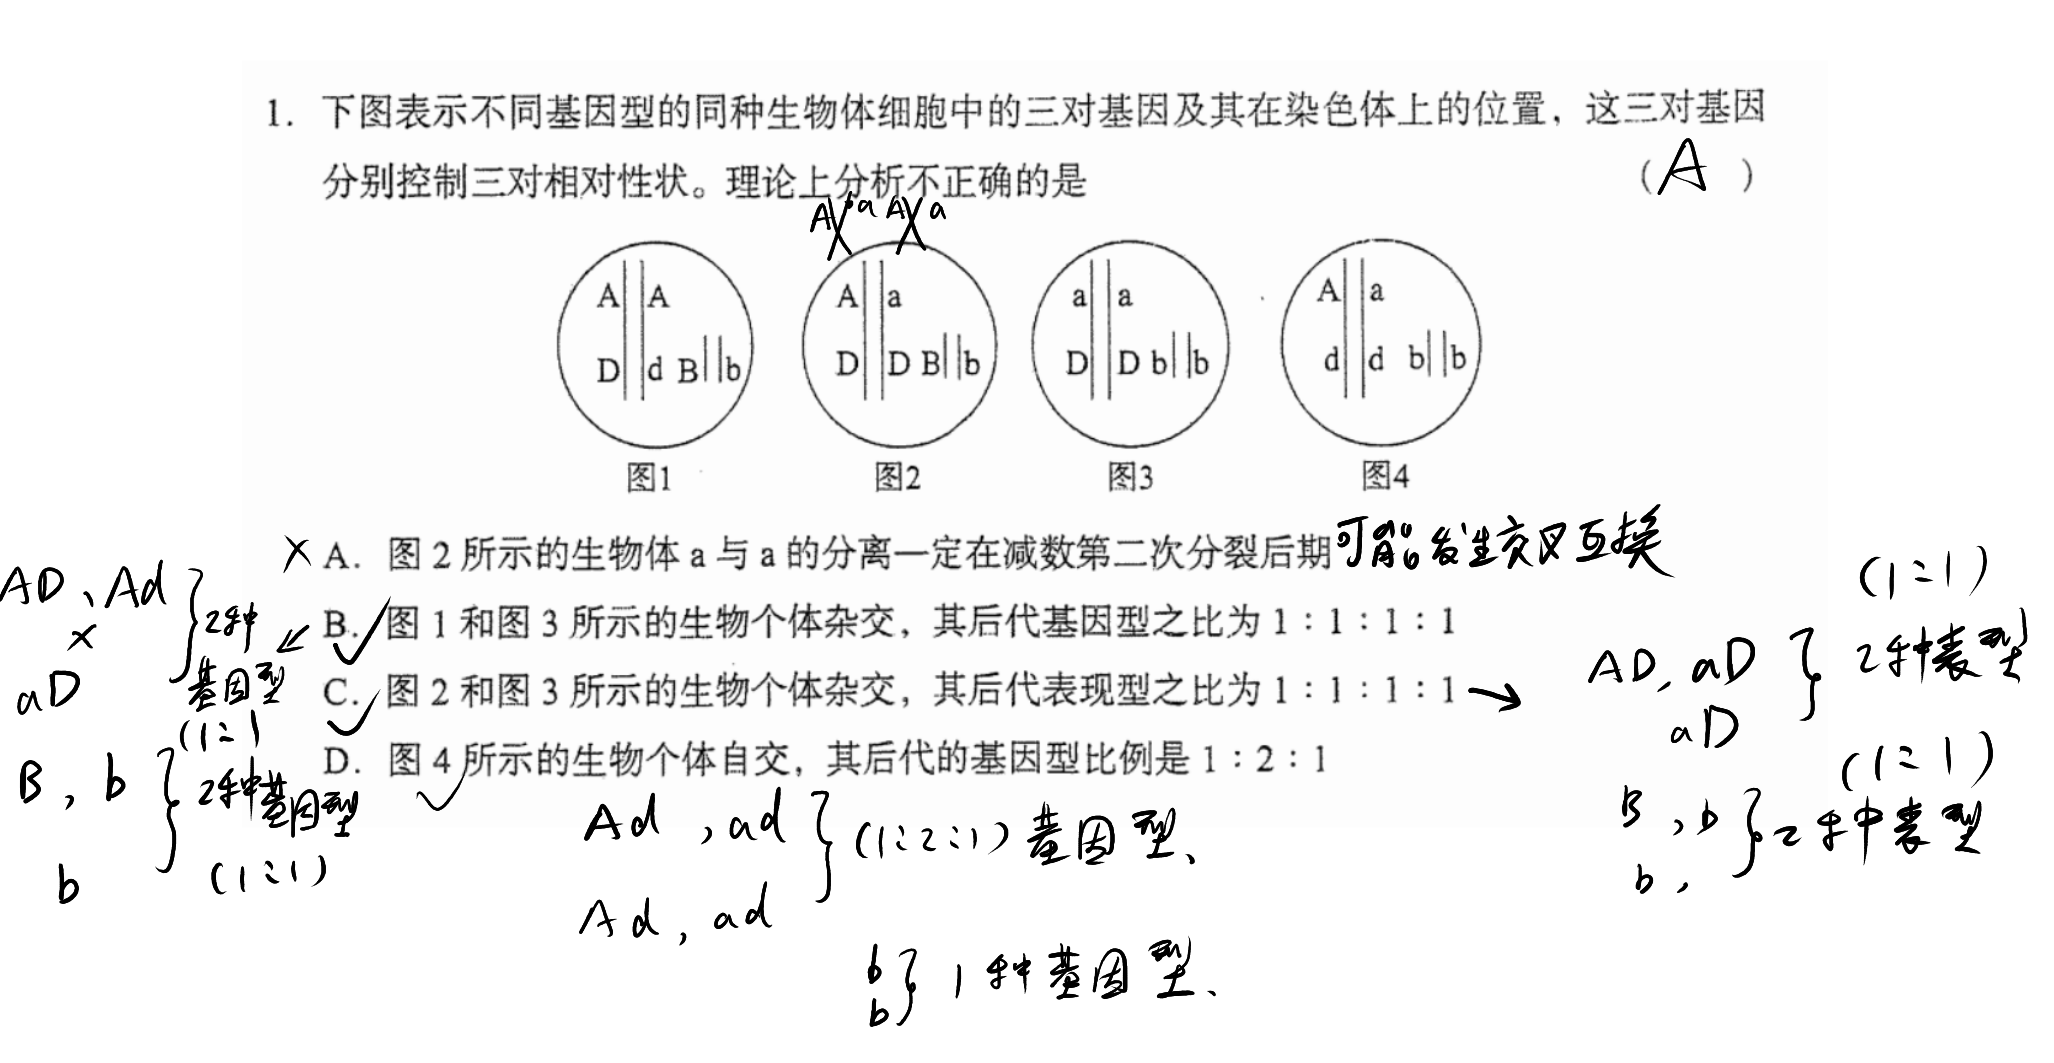 1. 下图表示不同基因型的同种生物体细胞中的三对基因及其在染色体上的位置，这三对基因
分别控制三对相对性状。理论上分析不正确的是 （ A ）
A a A a
A A D d B b
A a D D B b
a a D D b b
A a d d b b
图1 图2 图3 图4
× A. 图 2 所示的生物体 a 与 a 的分离一定在减数第二次分裂后期 可能发生交叉互换
B. 图 1 和图 3 所示的生物个体杂交，其后代基因型之比为 1：1：1：1
C. 图 2 和图 3 所示的生物个体杂交，其后代表现型之比为 1：1：1：1 →
D. 图 4 所示的生物个体自交，其后代的基因型比例是 1：2：1
AD、Ad
×
aD
2种
基因型
(1:1
B, b
b
2种基因型
(1:1)
Ad, ad
Ad, ad
(1:2:1) 基因型、
b
b
1种基因型、
(1:1)
AD, aD
aD
2种表型
(1:1)
B, b
b,
2种表型